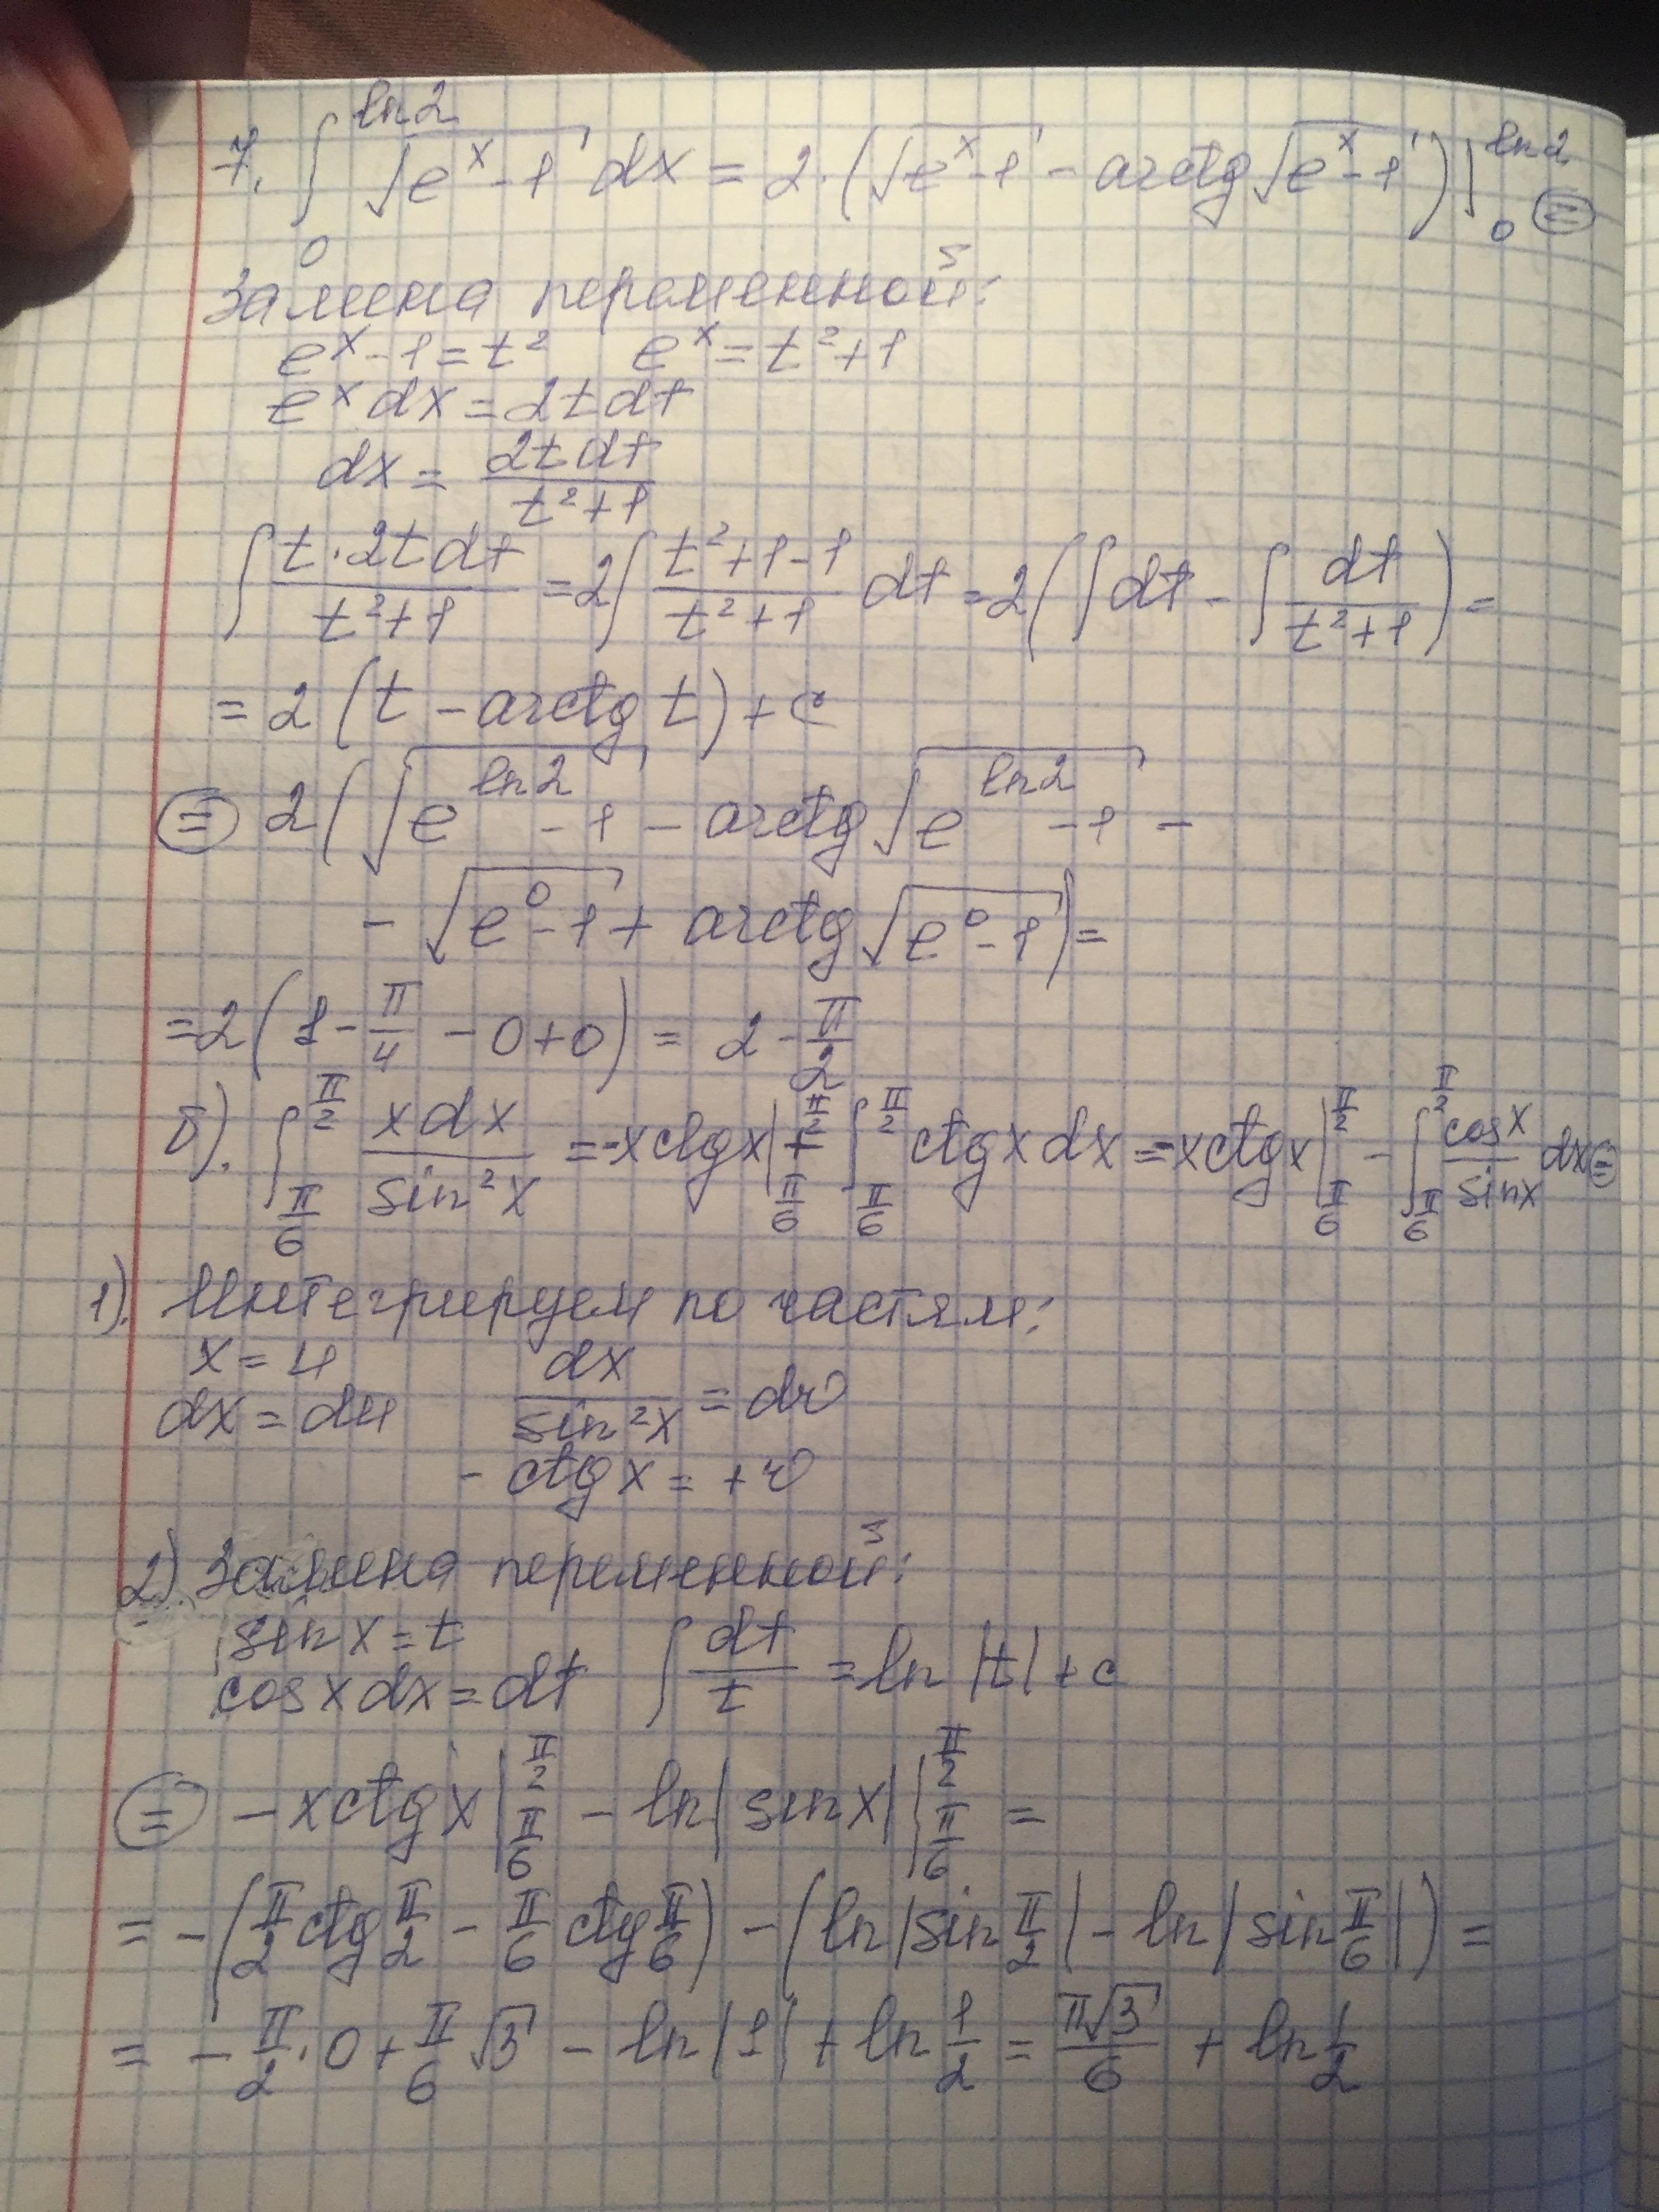 7. ∫₀^{ln2} √(eˣ-1) dx = 2·(√(eˣ-1) - arctg√(eˣ-1))|₀^{ln2} (=)
Замена переменной:
eˣ-1=t² eˣ=t²+1
eˣdx=2tdt
dx = 2tdt/(t²+1)
∫ t·2tdt/(t²+1) = 2∫ (t²+1-1)/(t²+1) dt = 2(∫dt - ∫ dt/(t²+1)) =
= 2(t - arctg t) + c
(=) 2(√(e^{ln2} - 1) - arctg√(e^{ln2} - 1) -
- √(e⁰-1) + arctg√(e⁰-1)) =
= 2(1 - π/4 - 0+0) = 2 - π/2
б). ∫_{π/6}^{π/2} xdx/sin²x = -xctgx|_{π/6}^{π/2} + ∫_{π/6}^{π/2} ctgxdx = -xctgx|_{π/6}^{π/2} - ∫_{π/6}^{π/2} cosx/sinx dx (=)
1). Интегрируем по частям:
x = u dx/sin²x = dv
dx = du
- ctgx = +v
2). Замена переменной:
sinx = t
cosxdx = dt ∫ dt/t = ln|t| + c
(=) -xctgx|_{π/6}^{π/2} - ln|sinx||_{π/6}^{π/2} =
= -(π/2 ctg π/2 - π/6 ctg π/6) - (ln|sin π/2| - ln|sin π/6|) =
= - π/2·0 + π/6 √3 - ln|1| + ln 1/2 = π√3/6 + ln 1/2